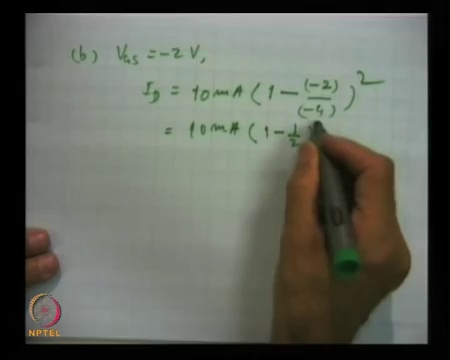 (b) VGS = -2 V,
ID = 10mA ( 1 - (-2)/(-4) )²
= 10mA ( 1 - 1/2
NPTEL